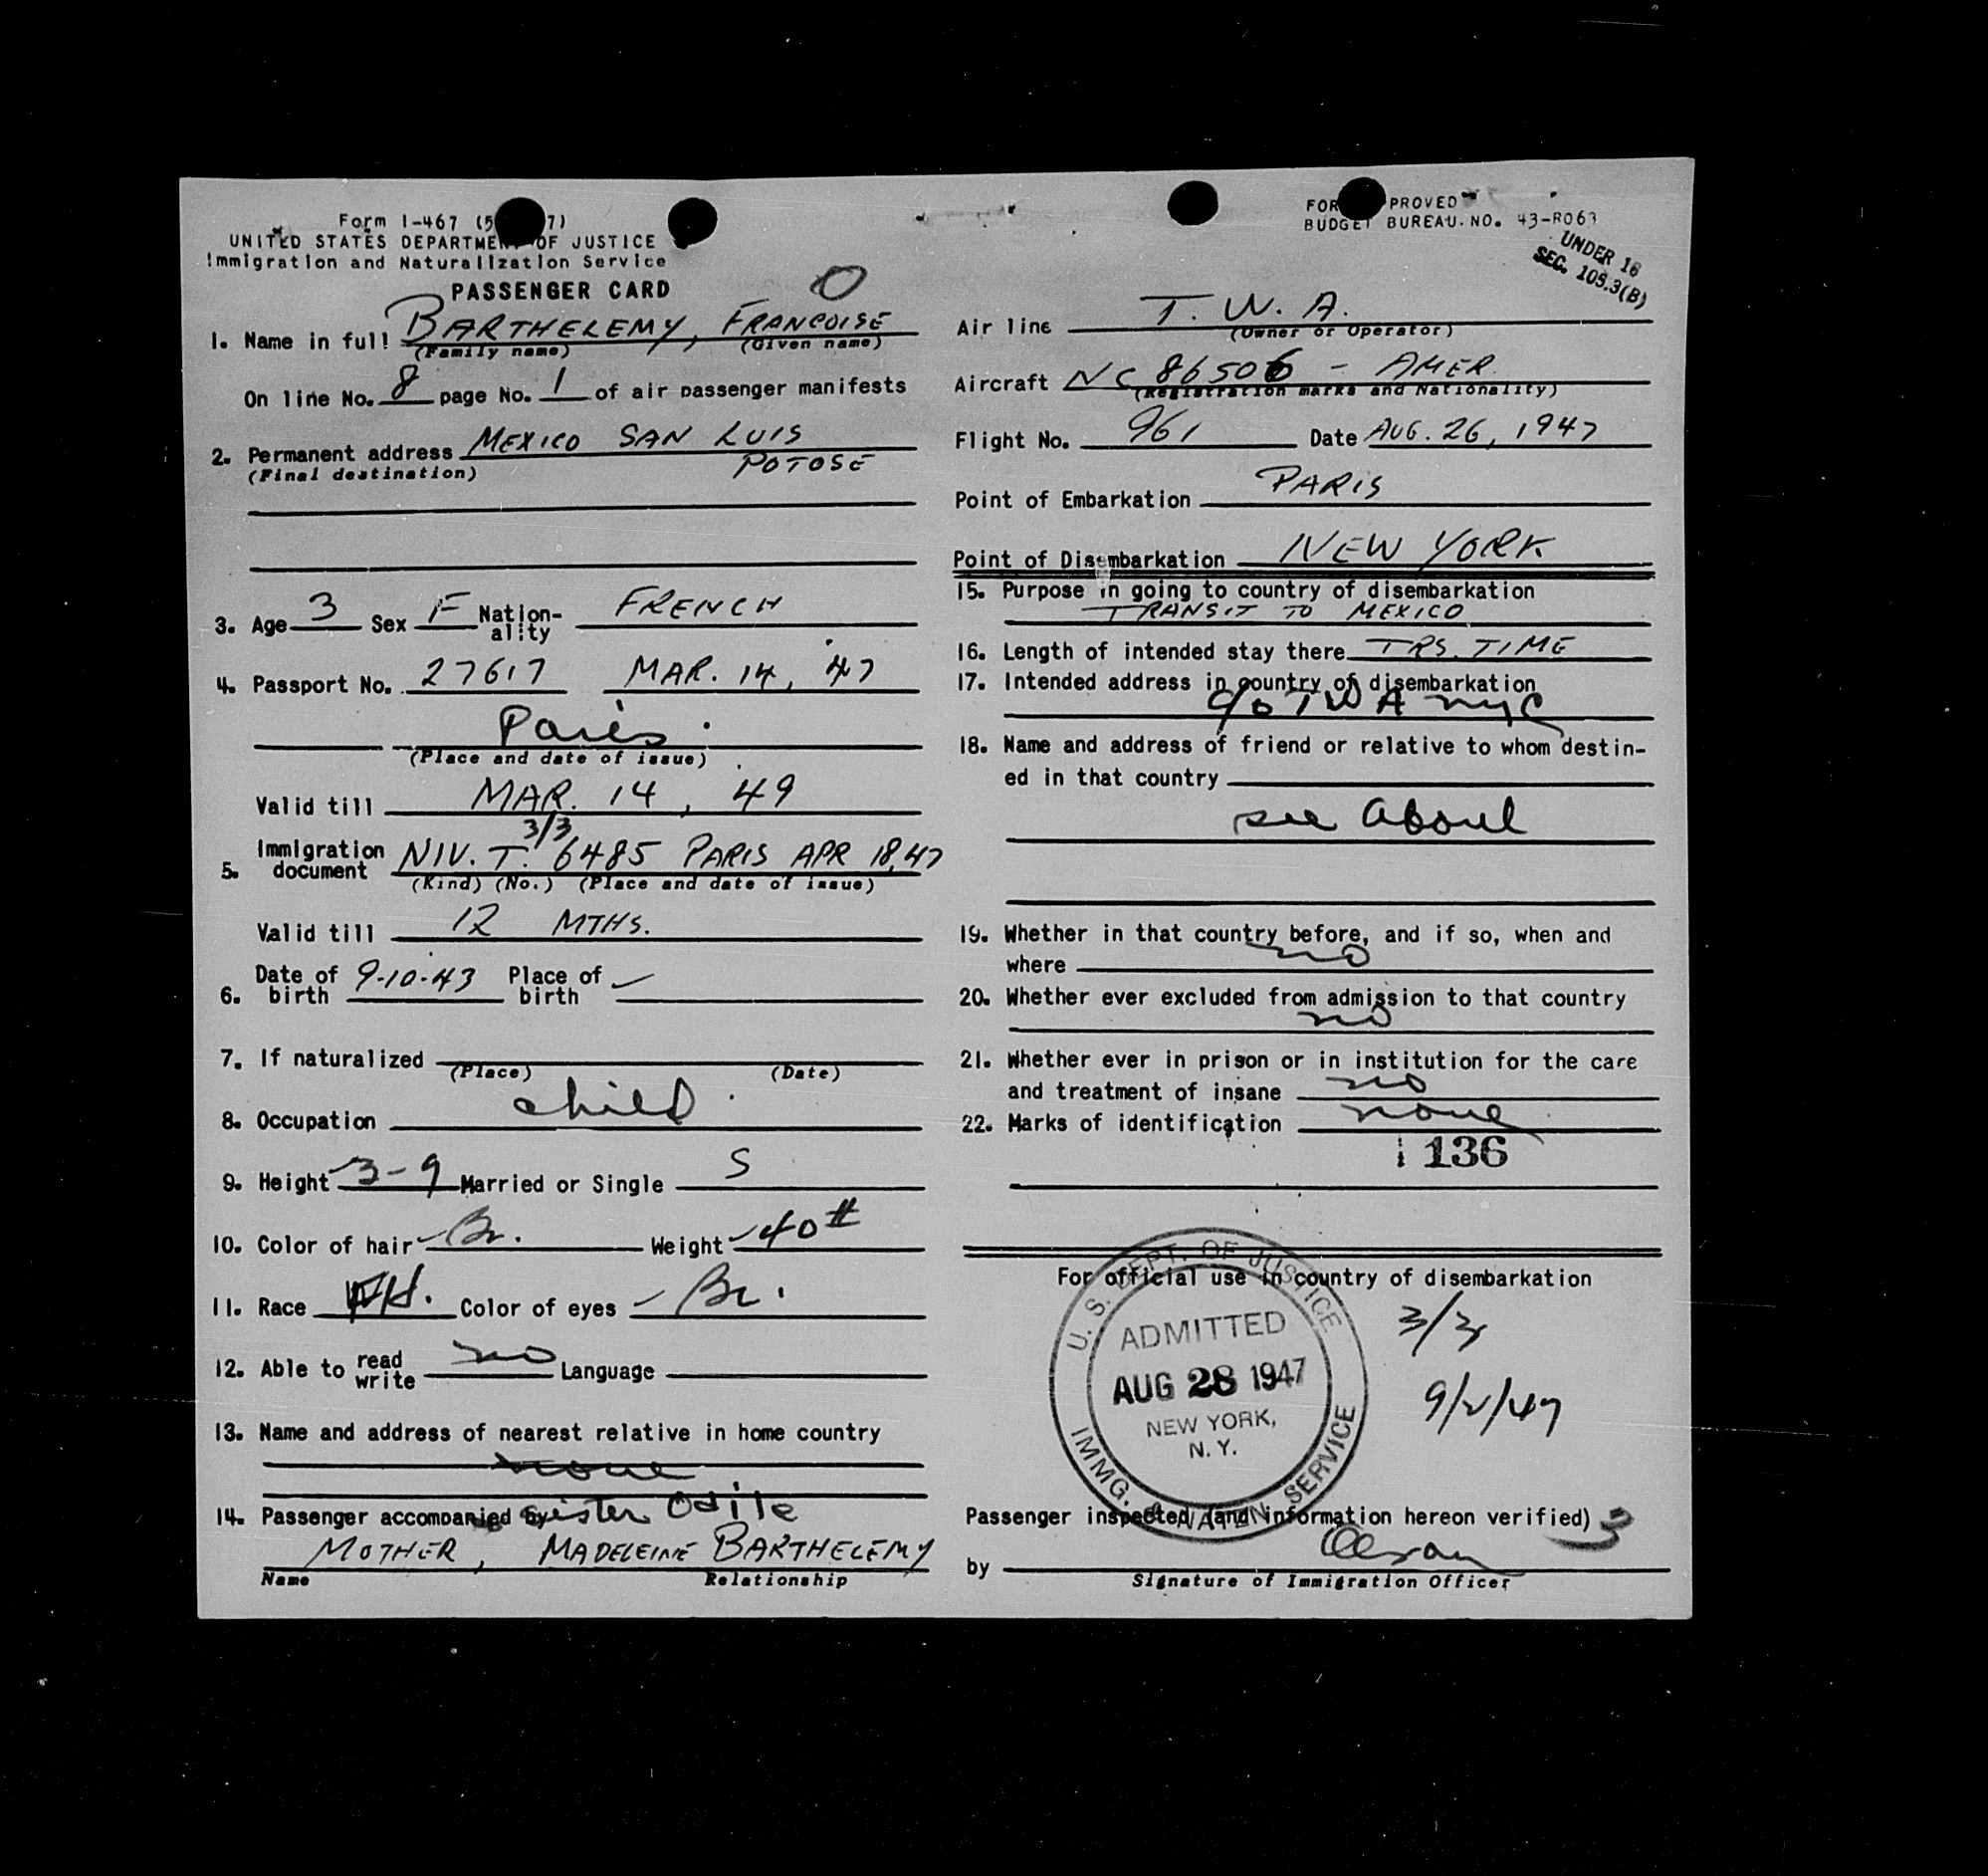 Form I-467 (5 7)
UNITED STATES DEPARTMENT OF JUSTICE
Immigration and Naturalization Service
PASSENGER CARD
O
1. Name in full BARTHELEMY, FRANCOISE
(Family name) (Given name)
On line No. 8 page No. 1 of air passenger manifests
2. Permanent address MEXICO SAN LUIS
(Final destination) POTOSE
3. Age 3 Sex F Nation-ality FRENCH
4. Passport No. 27617 MAR. 14, 47
Paris
(Place and date of issue)
Valid till MAR. 14, 49
3/3
5. Immigration document NIV. T. 6485 PARIS APR 18,47
(Kind) (No.) (Place and date of issue)
Valid till 12 MTHS.
6. Date of birth 9-10-43 Place of birth —
7. If naturalized
(Place) (Date)
8. Occupation child
9. Height 3-9 Married or Single S
10. Color of hair Br. Weight 40#
11. Race WH. Color of eyes Br.
12. Able to read write no Language
13. Name and address of nearest relative in home country
none
14. Passenger accompanied by sister Odile
MOTHER, MADELEINE BARTHELEMY
Name Relationship
FOR PROVED
BUDGET BUREAU. NO. 43-R063
UNDER 16
SEC. 105.3(B)
Air line T. W. A.
(Owner or Operator)
Aircraft NC 86506 - AMER.
(Registration marks and Nationality)
Flight No. 961 Date AUG. 26, 1947
Point of Embarkation PARIS
Point of Disembarkation NEW YORK
15. Purpose in going to country of disembarkation
TRANSIT TO MEXICO
16. Length of intended stay there TRS. TIME
17. Intended address in country of disembarkation
c/o TWA NYC
18. Name and address of friend or relative to whom destin-
ed in that country
see aboul
19. Whether in that country before, and if so, when and
where no
20. Whether ever excluded from admission to that country
no
21. Whether ever in prison or in institution for the care
and treatment of insane no
22. Marks of identification none
136
For official use in country of disembarkation
U. S. DEPT. OF JUSTICE
ADMITTED
AUG 28 1947
NEW YORK,
N. Y.
IMMG. & NATZN. SERVICE
3/3
9/2/47
Passenger inspected (and information hereon verified) 3
by
Signature of Immigration Officer